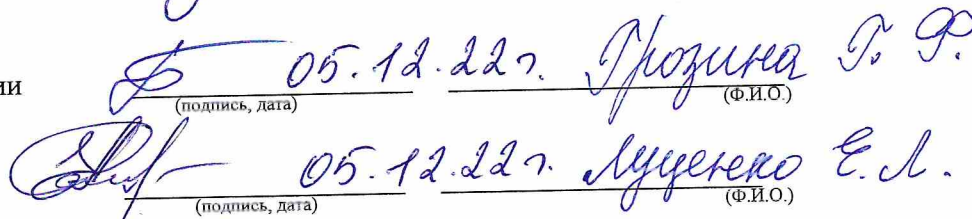 ии 05.12.22г. Грозина Г. Ф.
(подпись, дата) (Ф.И.О.)
05.12.22г. Луценко Е. Л.
(подпись, дата) (Ф.И.О.)